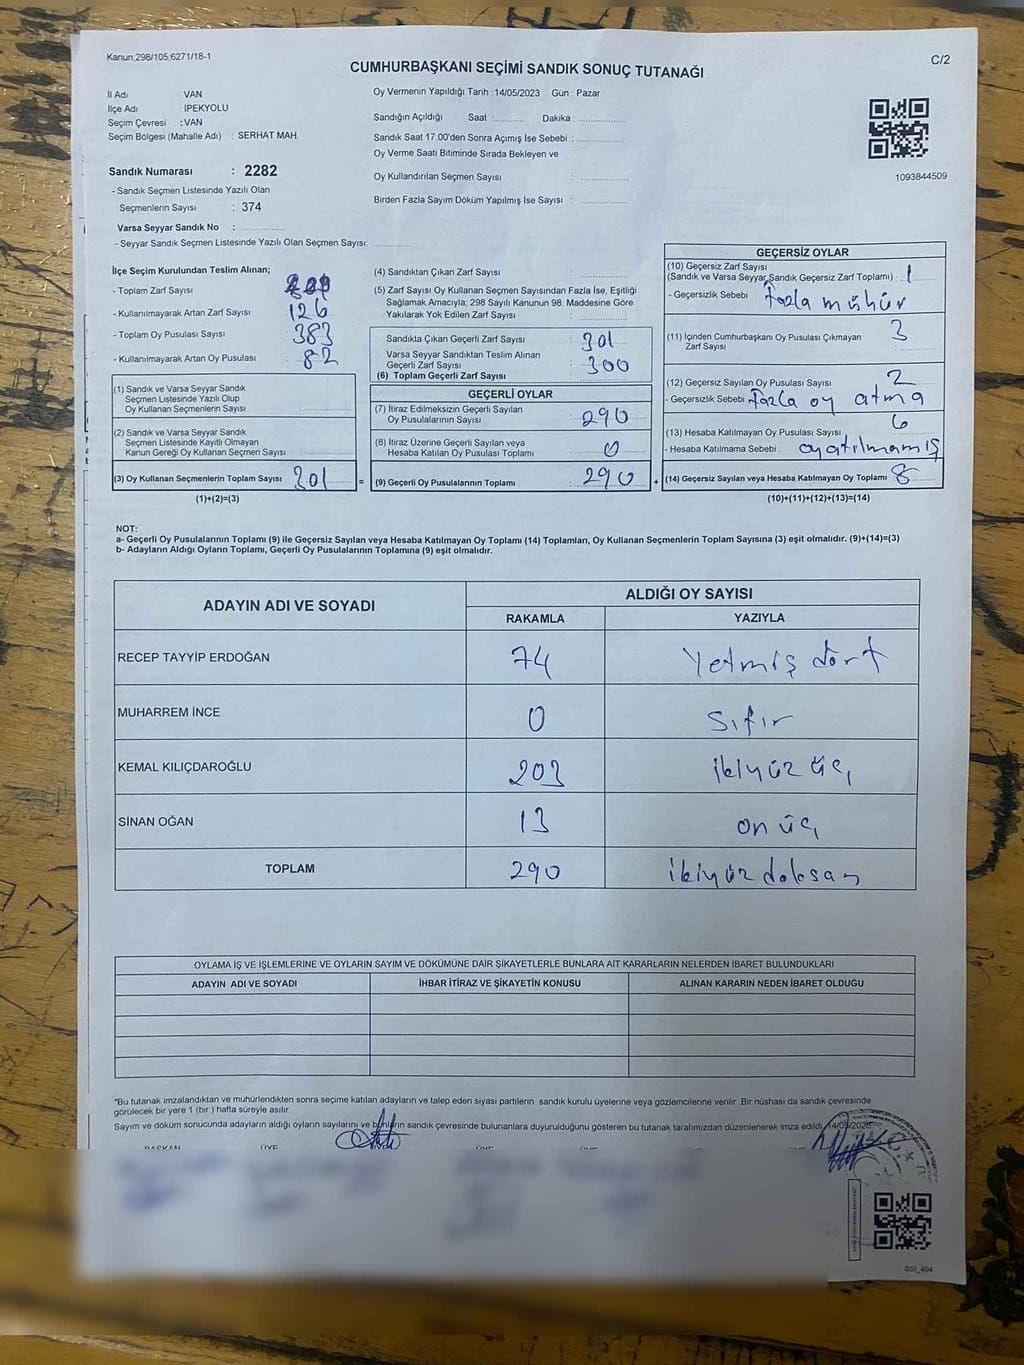 Kanun;298/105;6271/18-1
C/2
CUMHURBAŞKANI SEÇİMİ SANDIK SONUÇ TUTANAĞI
İl Adı VAN
İlçe Adı İPEKYOLU
Seçim Çevresi : VAN
Seçim Bölgesi (Mahalle Adı) : SERHAT MAH.
Sandık Numarası : 2282
- Sandık Seçmen Listesinde Yazılı Olan
Seçmenlerin Sayısı : 374
Varsa Seyyar Sandık No :
- Seyyar Sandık Seçmen Listesinde Yazılı Olan Seçmen Sayısı:
Oy Vermenin Yapıldığı Tarih :14/05/2023 Gün : Pazar
Sandığın Açıldığı Saat : Dakika :
Sandık Saat 17.00'den Sonra Açımış İse Sebebi :
Oy Verme Saati Bitiminde Sırada Bekleyen ve
Oy Kullandırılan Seçmen Sayısı :
Birden Fazla Sayım Döküm Yapılmış İse Sayısı :
1093844509
İlçe Seçim Kurulundan Teslim Alınan;
- Toplam Zarf Sayısı :
- Kullanılmayarak Artan Zarf Sayısı : 126
- Toplam Oy Pusulası Sayısı : 383
- Kullanılmayarak Artan Oy Pusulası : 82
(1) Sandık ve Varsa Seyyar Sandık
Seçmen Listesinde Yazılı Olup
Oy Kullanan Seçmenlerin Sayısı :
(2) Sandık ve Varsa Seyyar Sandık
Seçmen Listesinde Kayıtlı Olmayan
Kanun Gereği Oy Kullanan Seçmen Sayısı :
(3) Oy Kullanan Seçmenlerin Toplam Sayısı : 301 =
(1)+(2)=(3)
(4) Sandıktan Çıkan Zarf Sayısı :
(5) Zarf Sayısı Oy Kullanan Seçmen Sayısından Fazla İse, Eşitliği
Sağlamak Amacıyla; 298 Sayılı Kanunun 98. Maddesine Göre
Yakılarak Yok Edilen Zarf Sayısı :
Sandıkta Çıkan Geçerli Zarf Sayısı : 301
Varsa Seyyar Sandıktan Teslim Alınan
Geçerli Zarf Sayısı : 300
(6) Toplam Geçerli Zarf Sayısı :
GEÇERLİ OYLAR
(7) İtiraz Edilmeksizin Geçerli Sayılan
Oy Pusulalarının Sayısı : 290
(8) İtiraz Üzerine Geçerli Sayılan veya
Hesaba Katılan Oy Pusulası Toplamı : 0
(9) Geçerli Oy Pusulalarının Toplamı : 290 +
GEÇERSİZ OYLAR
(10) Geçersiz Zarf Sayısı
(Sandık ve Varsa Seyyar Sandık Geçersiz Zarf Toplamı) : 1
- Geçersizlik Sebebi : fazla mühür
(11) İçinden Cumhurbaşkanı Oy Pusulası Çıkmayan
Zarf Sayısı : 3
(12) Geçersiz Sayılan Oy Pusulası Sayısı : 2
- Geçersizlik Sebebi : fazla oy atma
(13) Hesaba Katılmayan Oy Pusulası Sayısı : 6
- Hesaba Katılmama Sebebi : oy atılmamış
(14) Geçersiz Sayılan veya Hesaba Katılmayan Oy Toplamı : 8
(10)+(11)+(12)+(13)=(14)
NOT:
a- Geçerli Oy Pusulalarının Toplamı (9) ile Geçersiz Sayılan veya Hesaba Katılmayan Oy Toplamı (14) Toplamları, Oy Kullanan Seçmenlerin Toplam Sayısına (3) eşit olmalıdır. (9)+(14)=(3)
b- Adayların Aldığı Oyların Toplamı, Geçerli Oy Pusulalarının Toplamına (9) eşit olmalıdır.
ADAYIN ADI VE SOYADI
ALDIĞI OY SAYISI
RAKAMLA YAZIYLA
RECEP TAYYİP ERDOĞAN 74 Yetmiş dört
MUHARREM İNCE 0 Sıfır
KEMAL KILIÇDAROĞLU 203 ikiyüz üç
SİNAN OĞAN 13 on üç
TOPLAM 290 ikiyüz doksan
OYLAMA İŞ VE İŞLEMLERİNE VE OYLARIN SAYIM VE DÖKÜMÜNE DAİR ŞİKAYETLERLE BUNLARA AİT KARARLARIN NELERDEN İBARET BULUNDUKLARI
ADAYIN ADI VE SOYADI İHBAR İTİRAZ VE ŞİKAYETİN KONUSU ALINAN KARARIN NEDEN İBARET OLDUĞU
*Bu tutanak imzalandıktan ve mühürlendikten sonra seçime katılan adayların ve talep eden siyasi partilerin sandık kurulu üyelerine veya gözlemcilerine verilir .Bir nüshası da sandık çevresinde
görülecek bir yere 1 (bir ) hafta süreyle asılır.
Sayım ve döküm sonucunda adayların aldığı oyların sayılarını ve bunların sandık çevresinde bulunanlara duyurulduğunu gösteren bu tutanak tarafımızdan düzenlenerek imza edildi. 14/05/2023
BAŞKAN ÜYE ÜYE ÜYE ÜYE